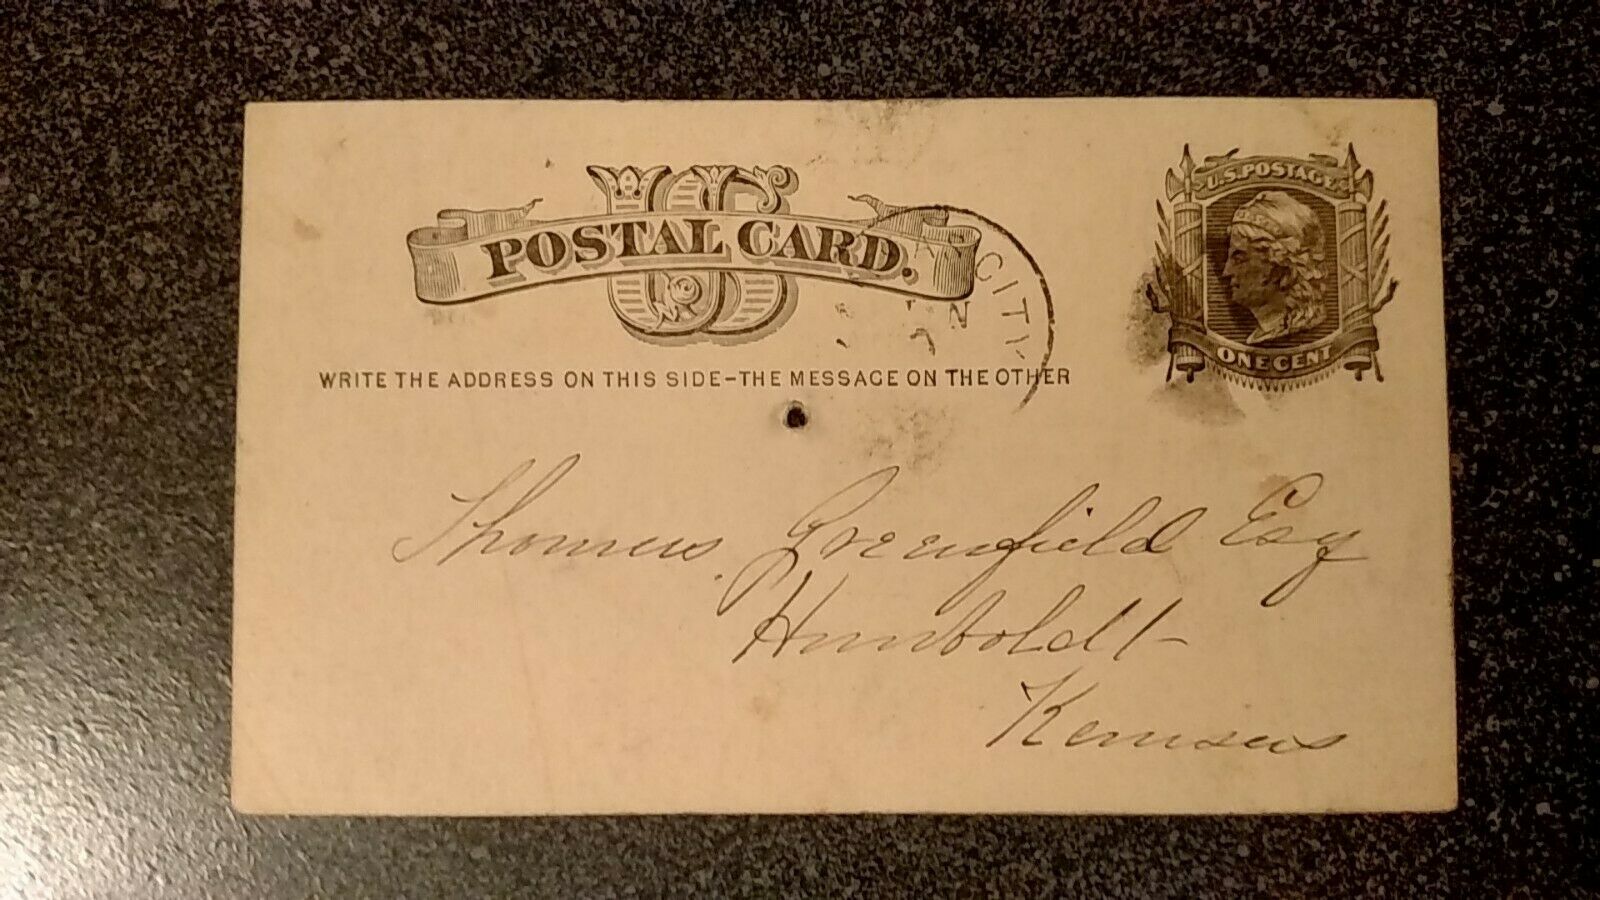 US
POSTAL CARD.
U.S. POSTAGE
ONE CENT
CITY
WRITE THE ADDRESS ON THIS SIDE-THE MESSAGE ON THE OTHER
Thomas Greenfield Esq
Humboldt
Kansas